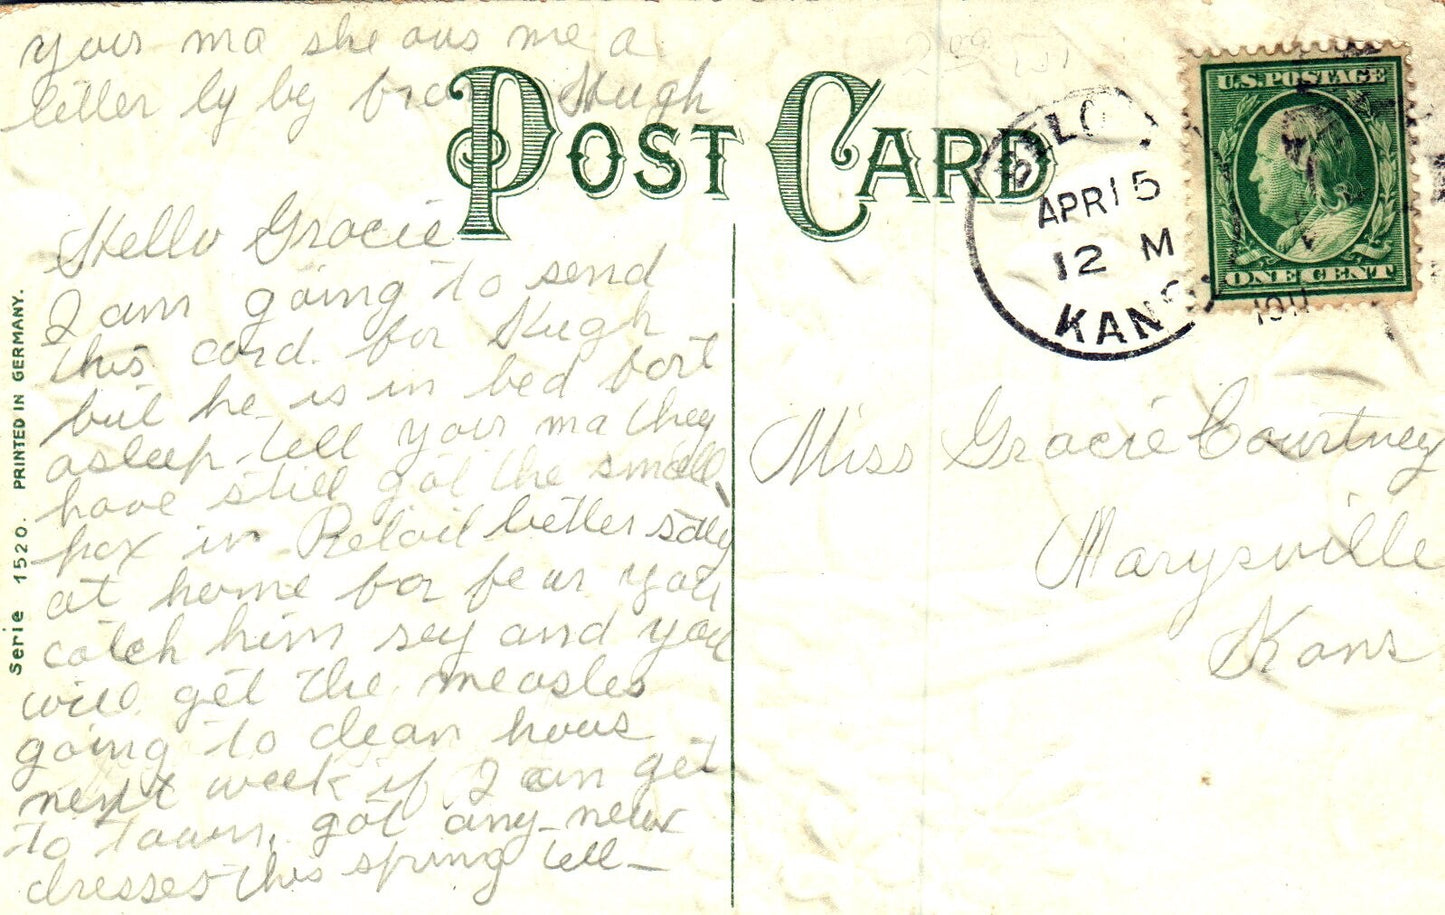 your ma she ows me a
letter by by from Hugh
POST CARD
Hello Gracie
I am going to send
this card for Hugh
but he is in bed fast
asleep tell your ma they
have still got the small
pox in Beloit better stay
at home for fear you
catch him sey and you
will get the measles
going to clean hous
next week if I can get
to town. got any new
dresses this spring tell
Serie 1520. PRINTED IN GERMANY.
APR 15
12 M
KANS
U.S. POSTAGE
ONE CENT
Miss Gracie Courtney
Marysville
Kans